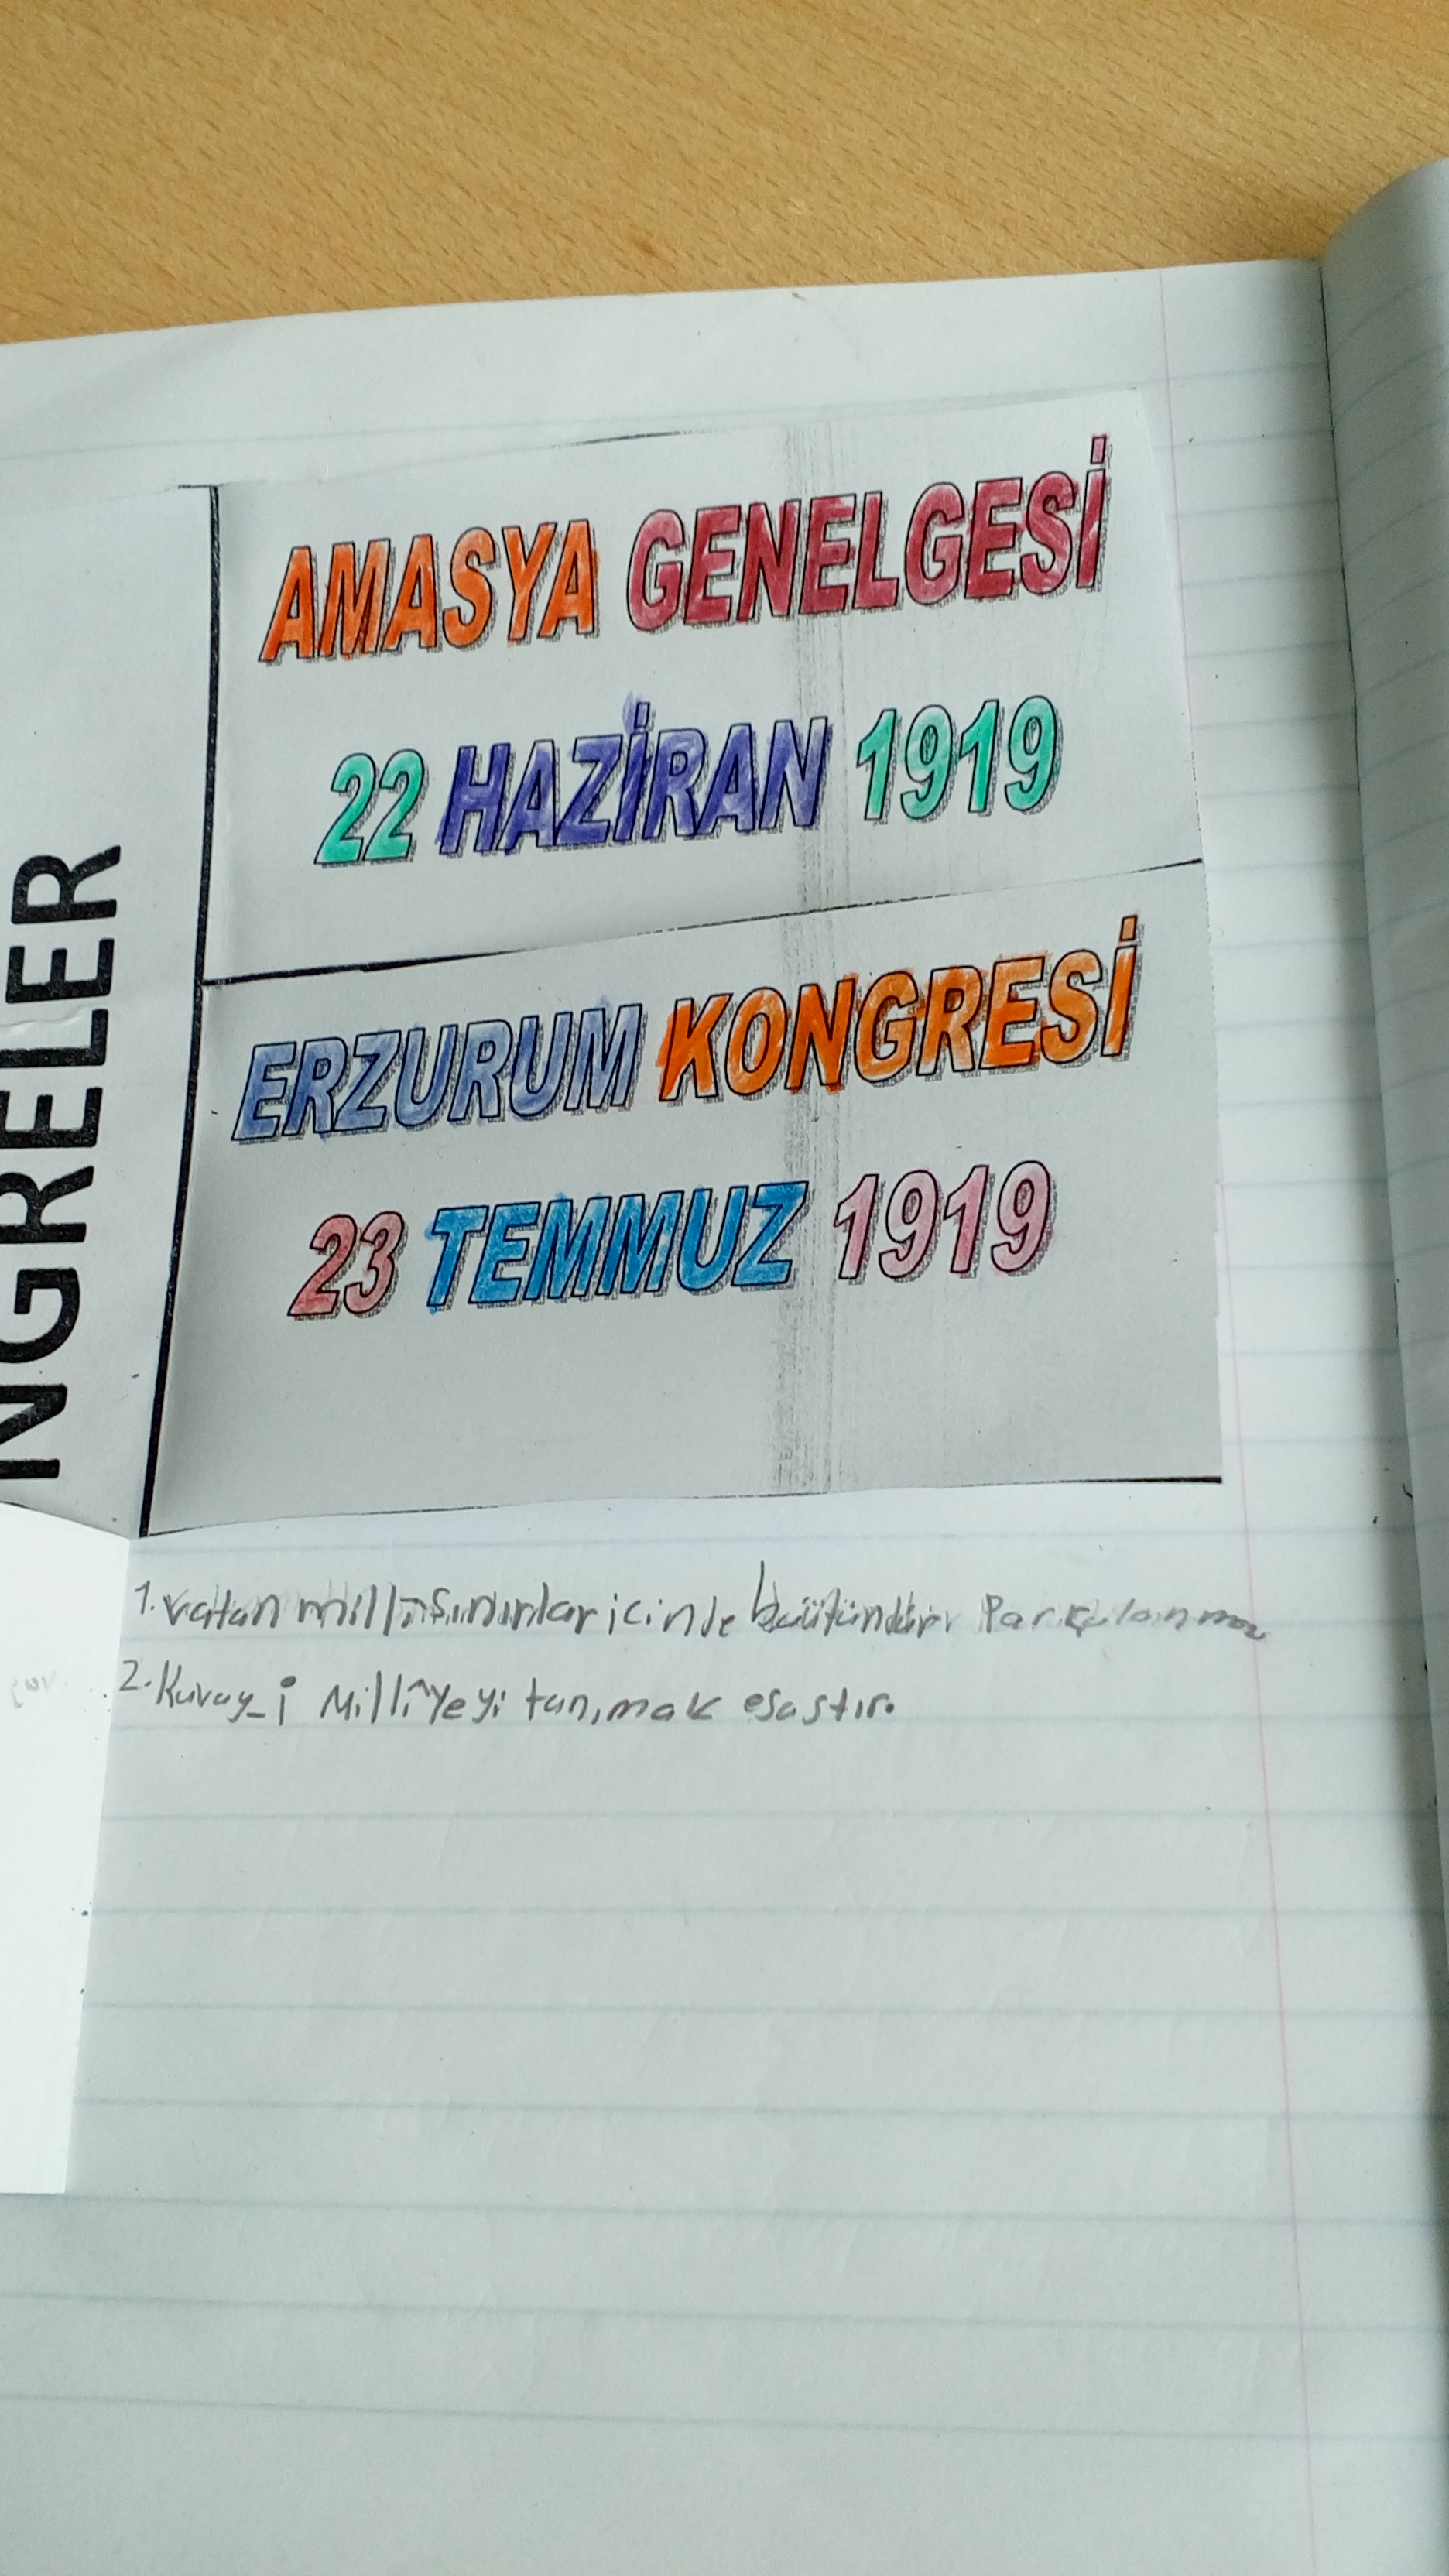 NGRELER
AMASYA GENELGESİ
22 HAZİRAN 1919
ERZURUM KONGRESİ
23 TEMMUZ 1919
1. vatan millî sınırlar içinde bütündür Parçalanmaz
2. Kuvay-i Millîyeyi tanımak esastır.